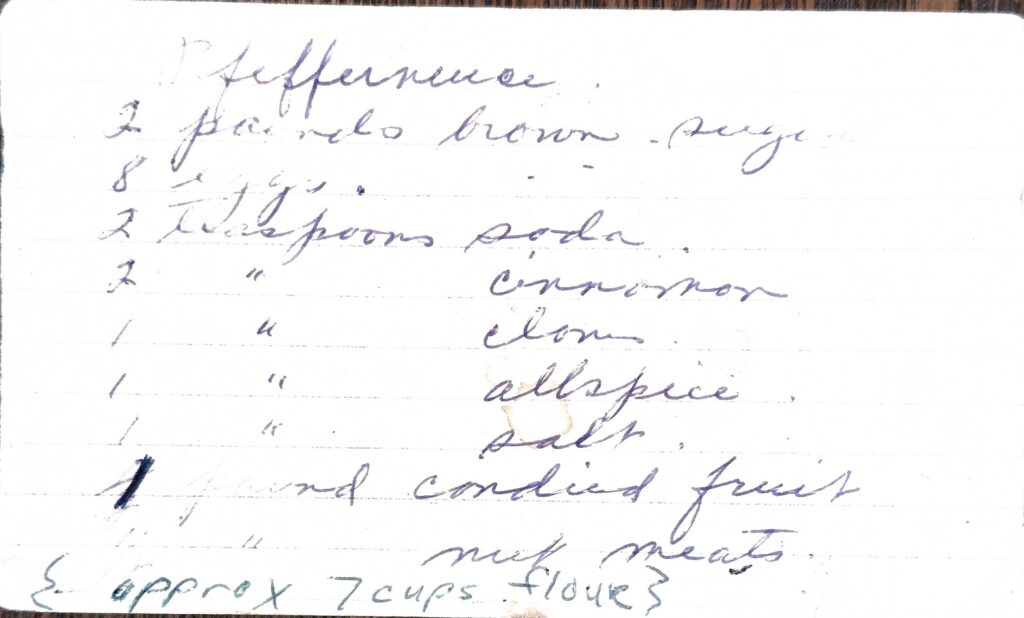 Pfeffernuce.
2 pounds brown sugar
8 eggs.
2 teaspoons soda.
2 " cinnamon
1 " cloves.
1 " allspice.
1 " salt.
1 pound candied fruit
" nut meats.
{ approx 7 cups flour }